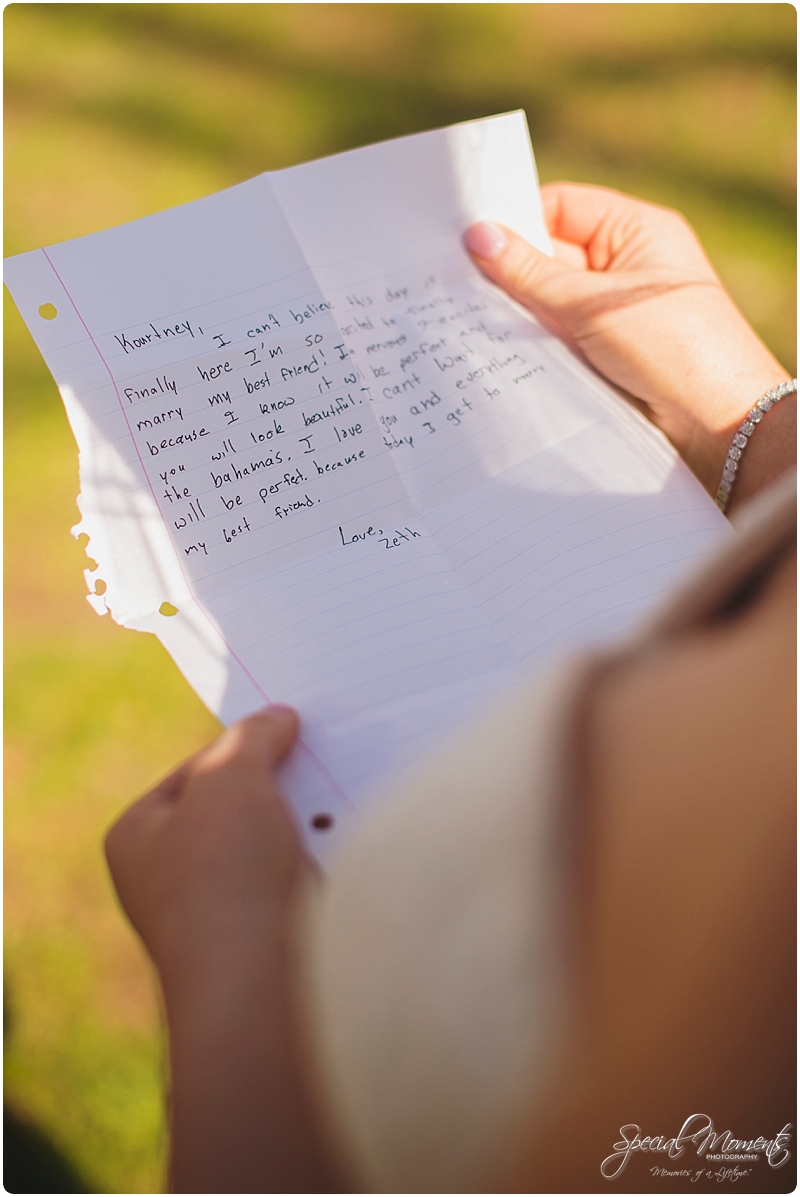 Kourtney,
I can't believe this day is
finally here I'm so excited to finally
marry my best friend! I'm nervous
because I know it will be perfect and
you will look beautiful. I can't wait for
the bahamas. I love you and everything
will be perfect because today I get to marry
my best friend.
Love,
Zeth
Special Moments
PHOTOGRAPHY
"Memories of a Lifetime"